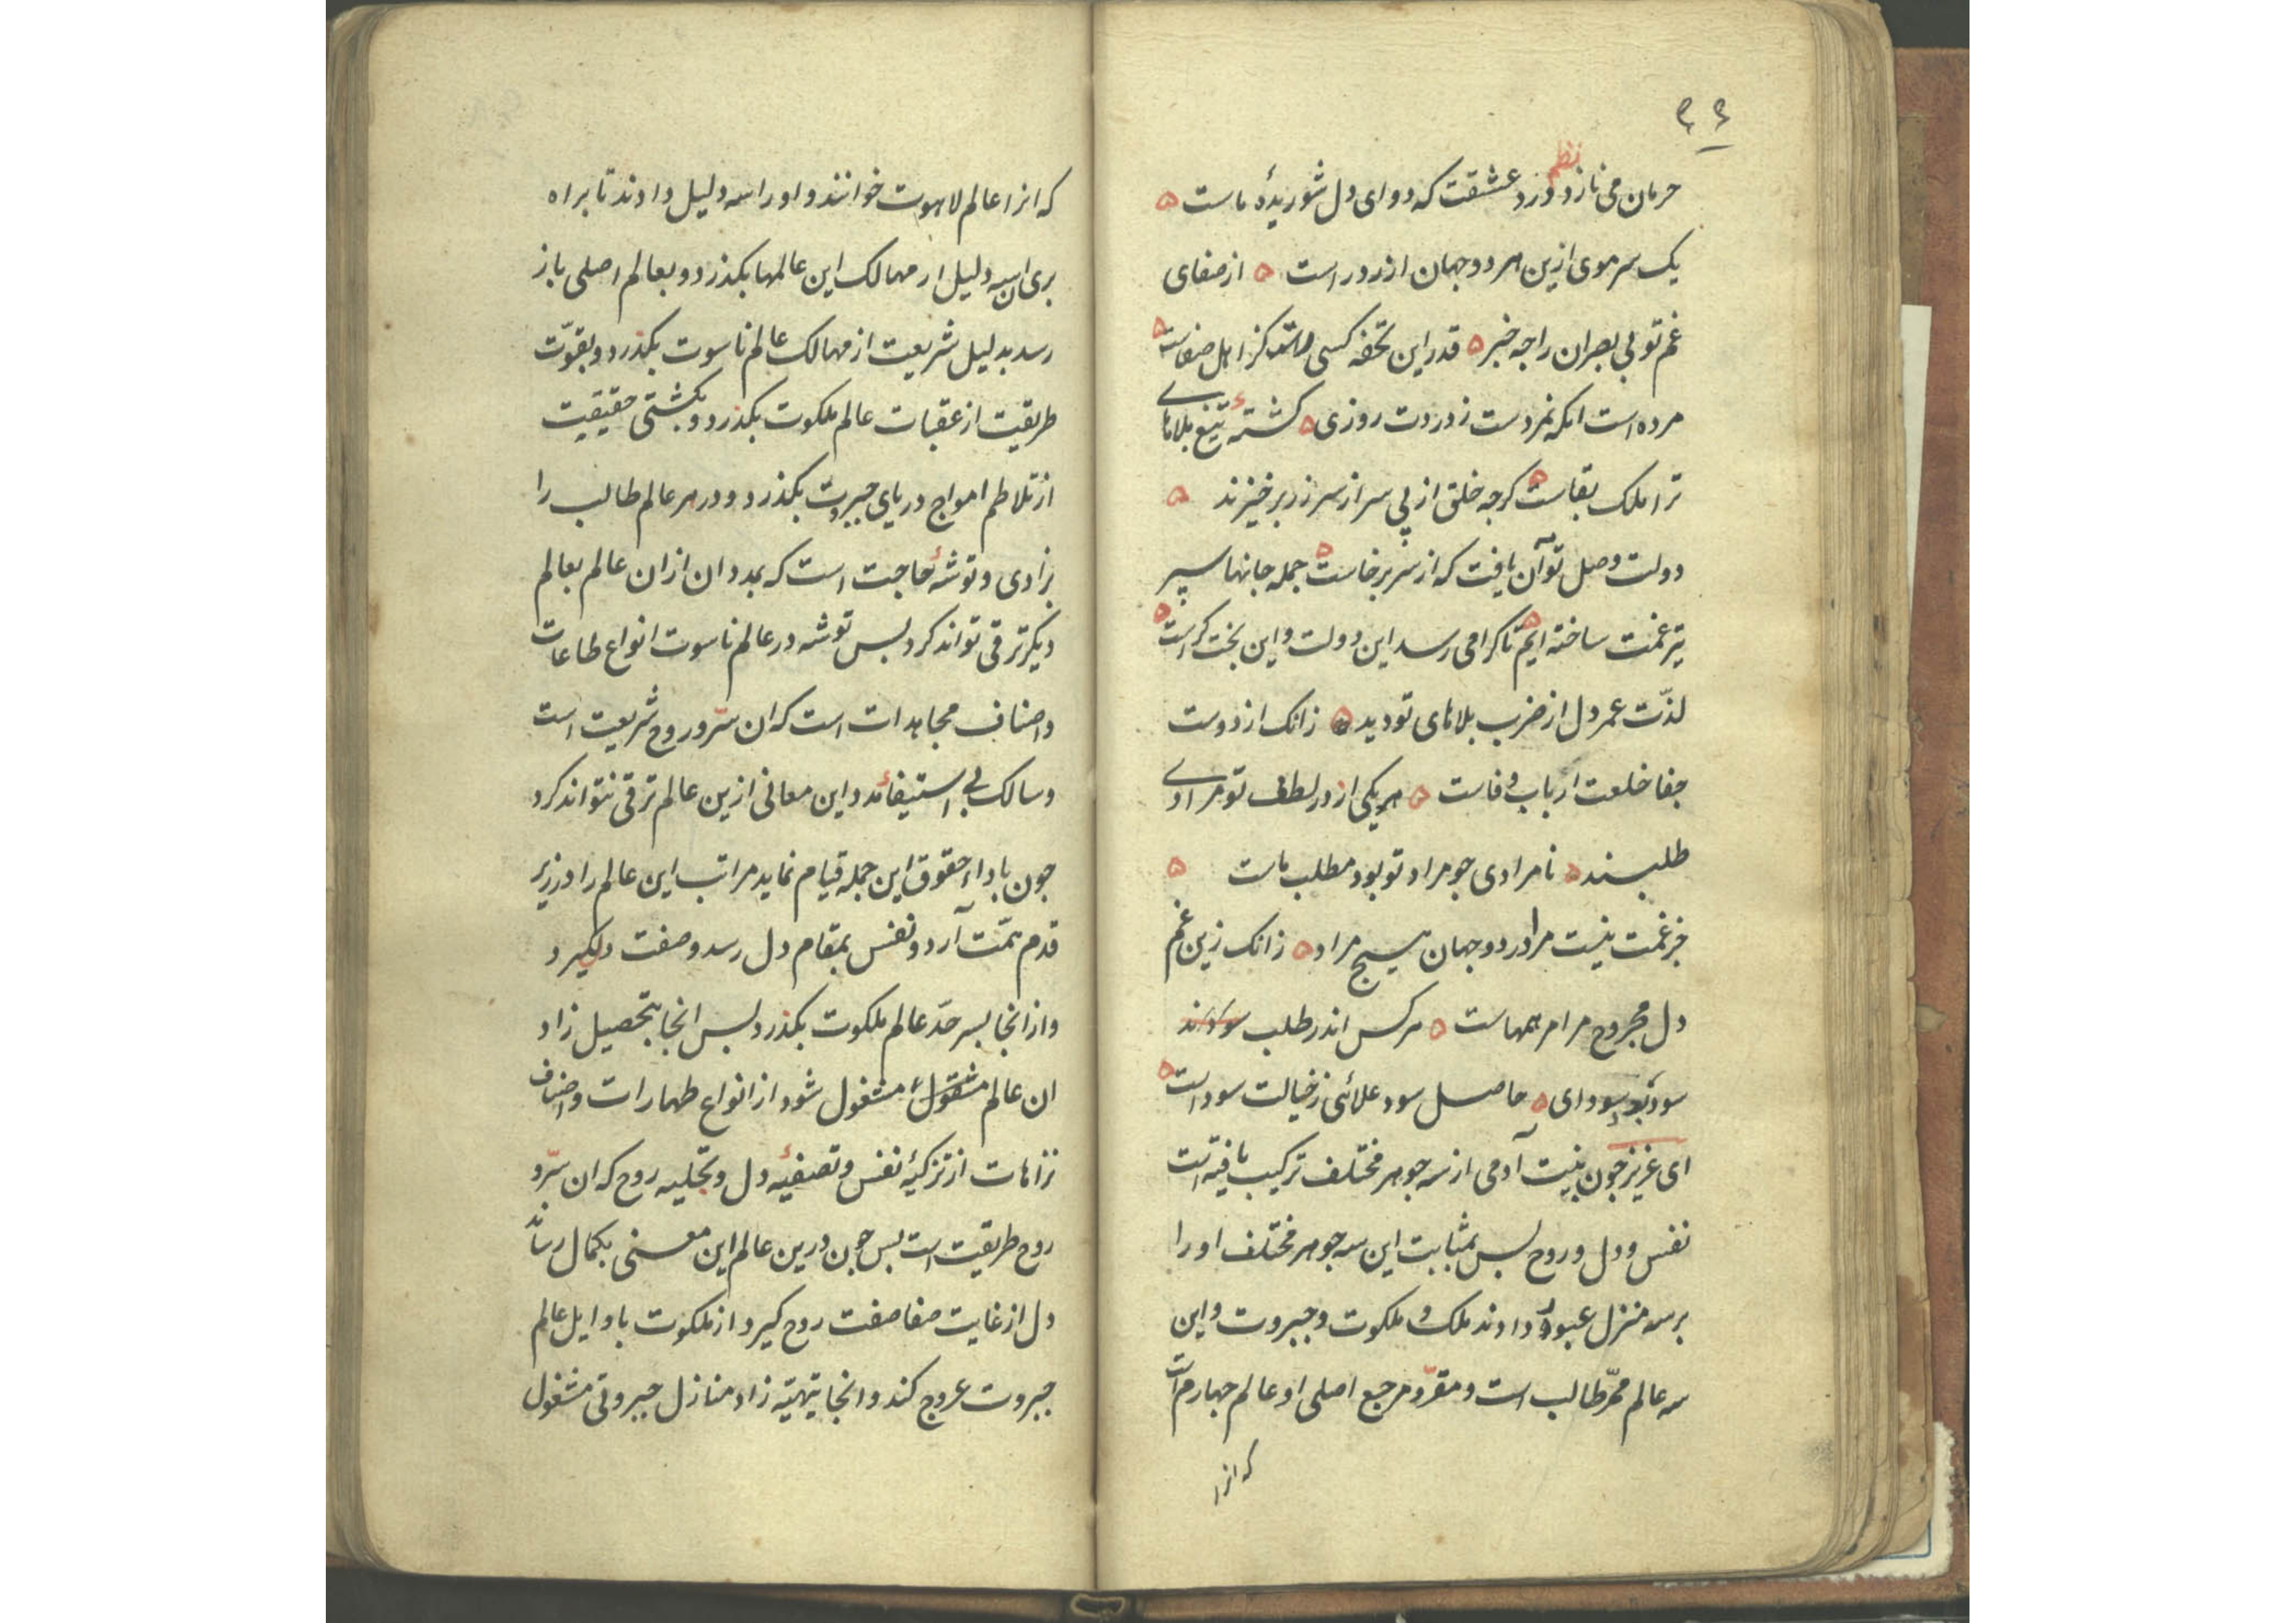 ۹۹
نظم
حرمان می نازد درد عشقت که دوای دل شوریدهٔ ماست
یک سر موی ازین هر دو جهان از در است از صفای
غم تو بی بصران را جه خبر قدر این تحفه کسی کز اهل صفاست
مرده است انکه نمردست ز دردت روزی کشتهٔ تیغ بلاهای
ترا ملک بقاست کرجه خلق از پی سر از سر زر برخیزند
دولت وصل تو آن یافت که از سر برخاست جمله جانها سپر
تیر غمت ساخته ایم تا کرا می رسد این دولت و این بخت کراست
لذّت عمر دل از ضرب بلاهای تو دید زانک از دوست
جفا خلعت ارباب وفاست هر یکی از در لطف تو مرادی
طلبند نامرادی جو مراد تو بود مطلب ماست
جز غمت نیست مرا در دو جهان هیسج مراد زانک زین غم
دل مجروح مرا مرهمهاست هر کس اندر طلب
سود سودای حاصل سود علائی ز خیالت سوداست
ای عزیز جون بنیت آدمی از سه جوهر مختلف ترکیب یافته است
نفس و دل و روح بس بمثابت این سه جوهر مختلف او را
بر سه منزل عبور دادند ملک و ملکوت و جبروت و این
سه عالم ممرّ طالب است و مقرّ و مرجع اصلی او عالم جهارم است
که انرا
که انرا عالم لاهوت خوانند و او را سه دلیل دادند تا براه
بری ان سه دلیل از مهالک این عالمها بکذرد و بعالم اصلی باز
رسد بدلیل شریعت از مهالک عالم ناسوت بکذرد و بقوّت
طریقت از عقبات عالم ملکوت بکذرد و بکشتی حقیقیت
از تلاطم امواج دریای جبروت بکذرد و در هر عالم طالب را
بزادی و توشهٔ حاجت است که بمدد ان ازان عالم بعالم
دیکر ترقی تواند کرد بس توشه در عالم ناسوت انواع طاعات
و اصناف مجاهدات است که ان سرّ و روح شریعت است
و سالک بی استیفاء این معانی ازین عالم ترقی نتواند کرد
جون باداء حقوق این جمله قیام نماید مراتب این عالم را در زیر
قدم همّت آرد و نفس بمقام دل رسد و صفت دل کیرد
و از انجا بسر حدّ عالم ملکوت بکذرد بس انجا بتحصیل زاد
ان عالم مشغول شود از انواع طهارات و اصناف
نزاهات از تزکیهٔ نفس و تصفیهٔ دل و تجلیه روح که ان سرّ و
روح طریقت است بس جون درین عالم این معنی بکمال رساند
دل از غایت صفا صفت روح کیرد از ملکوت باوایل عالم
جبروت عروج کند و انجا بتهیّه زاد منازل جبروتی مشغول